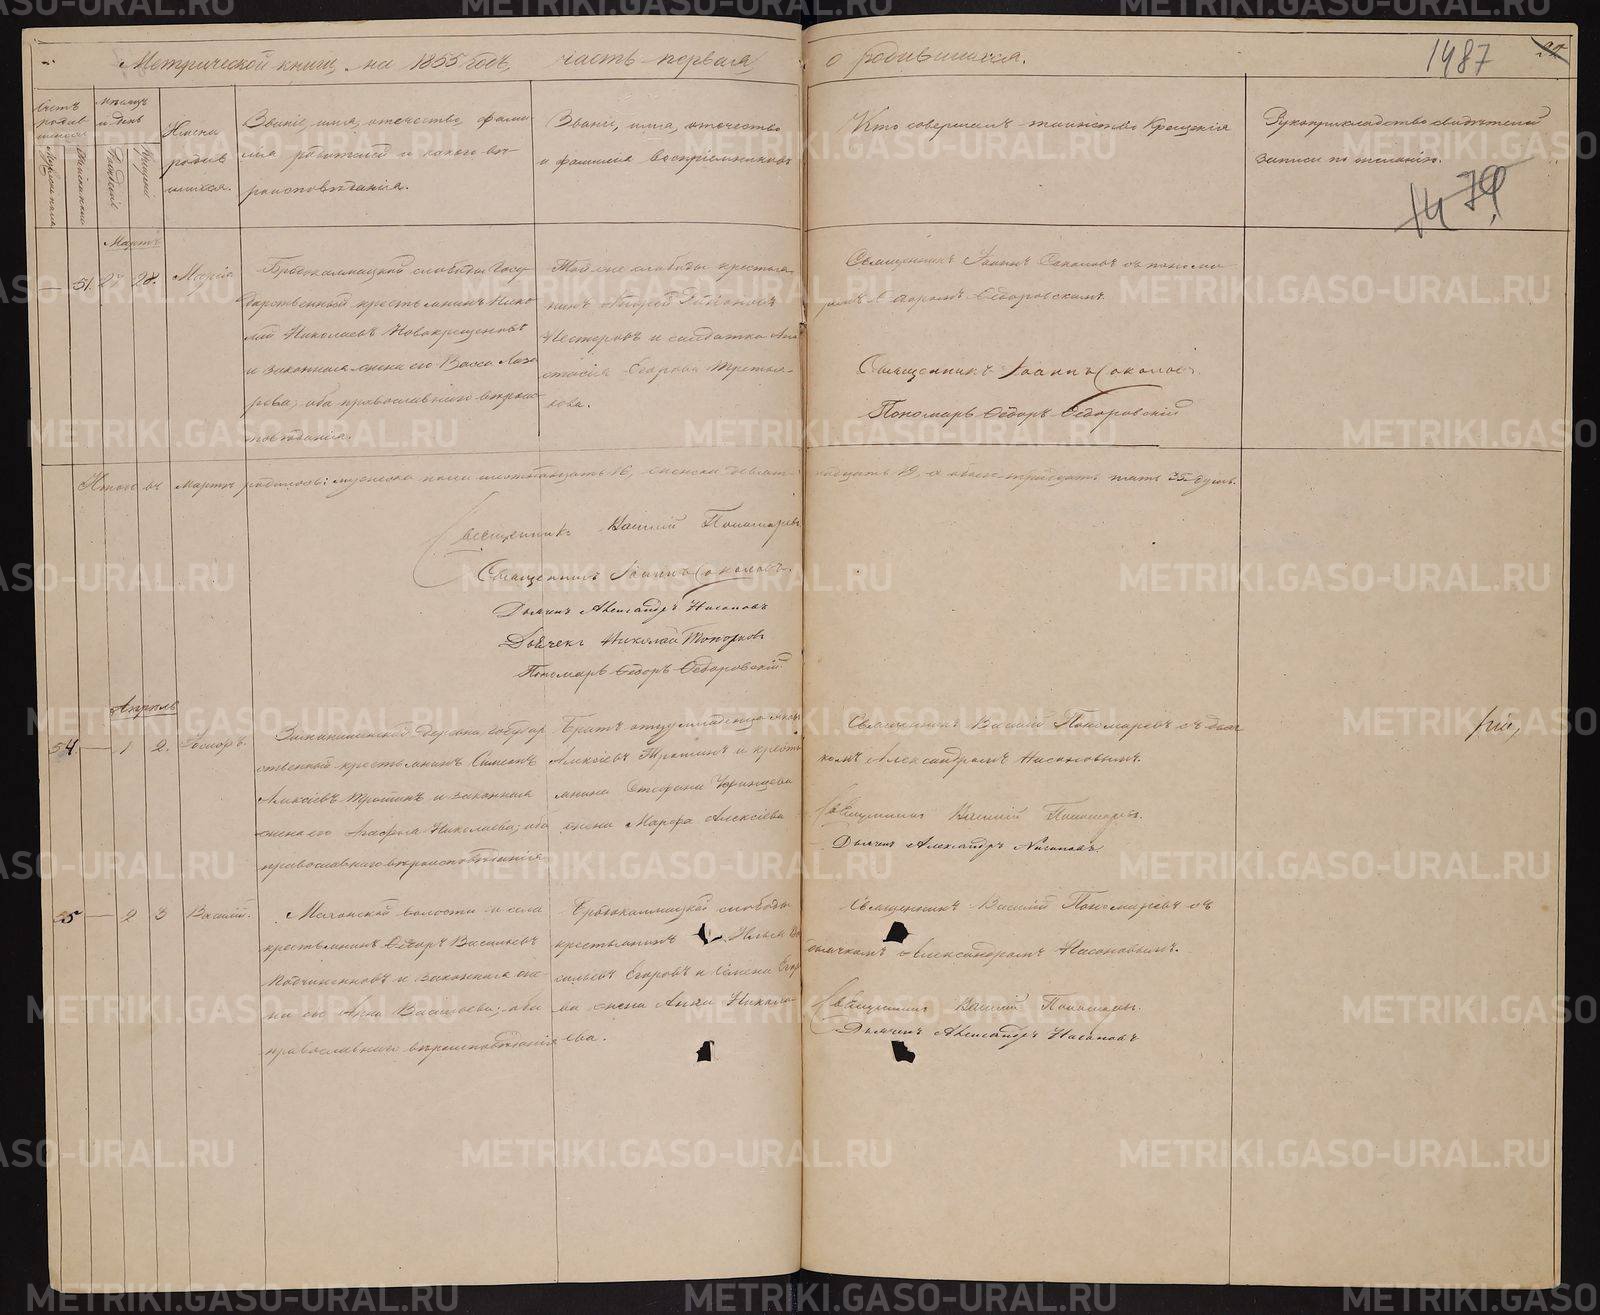 Метрической книги, на 1855 годъ, часть первая, о родившихся.
1487
Счетъ родившихся
Мужеска пола
Женска пола
Мѣсяцъ и день
Рожденія
Крещенія
Имена родившихся.
Званіе, имя, отечество, фамилія родителей и какого вѣроисповѣданія.
Званіе, имя, отечество и фамилія воспріемниковъ
Кто совершалъ таинство Крещенія
Рукоприкладство свидѣтелей записи по желанію.
1479
Мартъ
51. 27 28. Марія
Бродокалмацкой слободы Госу-
дарственный крестьянинъ Нико-
лай Николаевъ Новокрещеновъ
и законная жена его Васса Лаза-
рева; оба православнаго вѣроис-
повѣданія.
Той же слободы крестья-
нинъ Андрей
Нестеровъ и солдатка Ана-
стасія Егорова Третья-
кова.
Священникъ Іоаннъ Соколовъ съ понома-
ремъ Ѳедоромъ Ѳедоровскимъ.
Священникъ Іоаннъ Соколовъ.
Пономарь Ѳедоръ Ѳедоровскій
Итого въ Мартѣ родилось: мужеска пола шестнадцать 16, женска девят-
надцать 19, а обоего тридцать пять 35 душъ.
Священникъ Василій Пономаревъ
Священникъ Іоаннъ Соколовъ.
Дьячекъ Александръ Насоновъ
Дьячекъ Николай Топорковъ
Пономарь Ѳедоръ Ѳедоровскій
Апрѣль
54 — 1 2.
деревни Государ-
ственной крестьянинъ Симеонъ
Алексіевъ Трошинъ и законная
жена его Агафья Николаева; оба
православнаго вѣроисповѣданія
Братъ отцу младенца
Алексіевъ Трошинъ и кресть-
янина Стефана
жена Марфа Алексіева
Священникъ Василій Пономаревъ съ дьяч-
комъ Александромъ Насоновымъ.
Священникъ Василій Пономаревъ.
Дьячекъ Александръ Насоновъ.
55 — 2 3 Василій.
волости и села
крестьянинъ Ѳедоръ Васильевъ
Подчиненновъ и законная же-
на его Анна Васильева; оба
православнаго вѣроисповѣданія
Бродокалмацкой слободы
крестьянинъ Илья Ва-
сильевъ Егоровъ и Семена Егоро-
ва жена Анна Никола-
ева.
Священникъ Василій Пономаревъ съ
дьячкомъ Александромъ Насоновымъ.
Священникъ Василій Пономаревъ.
Дьячекъ Александръ Насоновъ
METRIKI.GASO-URAL.RU